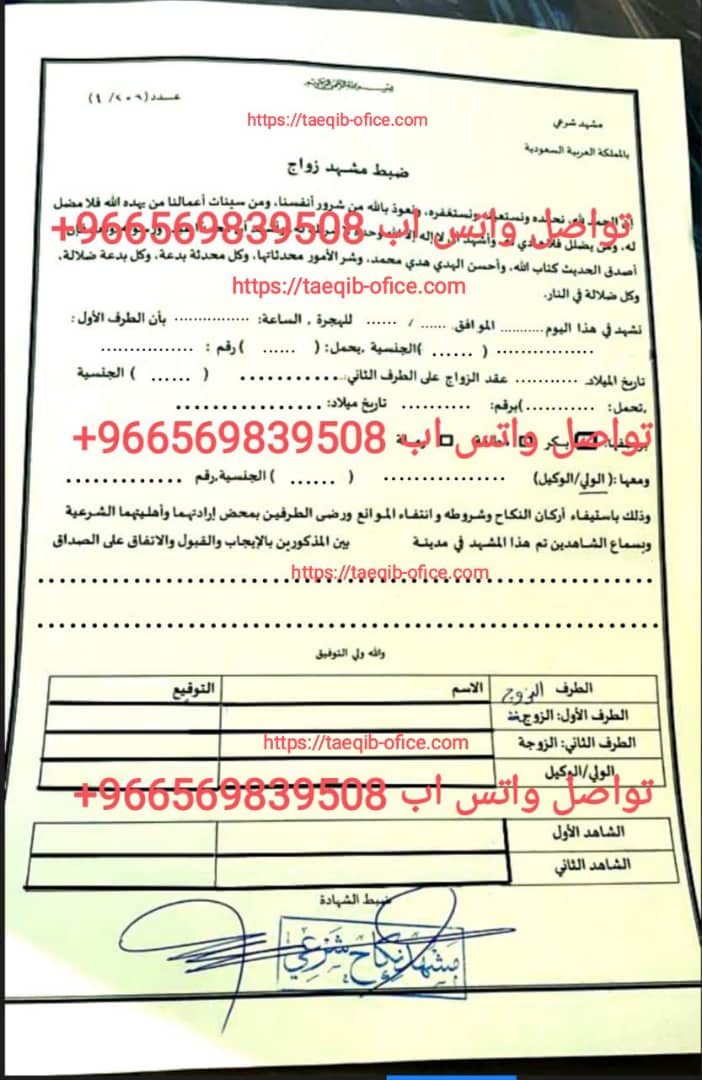 بسم الله الرحمن الرحيم
عدد (٢٠٦ / ٤)
https://taeqib-ofice.com
مشهد شرعي
بالمملكة العربية السعودية
ضبط مشهد زواج
إن الحمد لله، نحمده ونستعينه ونستغفره، ونعوذ بالله من شرور أنفسنا، ومن سيئات أعمالنا من يهده الله فلا مضل
تواصل واتس اب 966569839508+
له، ومن يضلل فلا هادي له، وأشهد أن لا إله إلا الله وحده لا شريك له
أصدق الحديث كتاب الله، وأحسن الهدي هدي محمد، وشر الأمور محدثاتها، وكل محدثة بدعة، وكل بدعة ضلالة،
https://taeqib-ofice.com
وكل ضلالة في النار.
نشهد في هذا اليوم .......... الموافق ...... / ...... للهجرة , الساعة: ................ بأن الطرف الأول:
................ ( ...... ) الجنسية ,يحمل: ( ...... ) رقم : ................
تاريخ الميلاد ............ عقد الزواج على الطرف الثاني: ............ ( ...... ) الجنسية
,تحمل: (............) برقم: ............ تاريخ ميلاد: ........................
تواصل واتس اب 966569839508+
بكر
ومعها : ( الولي/الوكيل) .................... ( ...... ) الجنسية,رقم ..................
وذلك باستيفاء أركان النكاح وشروطه وانتفاء الموانع ورضى الطرفين بمحض إرادتهما وأهليتهما الشرعية
وبسماع الشاهدين تم هذا المشهد في مدينة بين المذكورين بالإيجاب والقبول والاتفاق على الصداق
https://taeqib-ofice.com
والله ولي التوفيق
الطرف الزوج الاسم التوقيع
الطرف الأول: الزوج
الطرف الثاني: الزوجة
https://taeqib-ofice.com
الولي/الوكيل
تواصل واتس اب 966569839508+
الشاهد الأول
الشاهد الثاني
ضبط الشهادة
مشهد نكاح شرعي